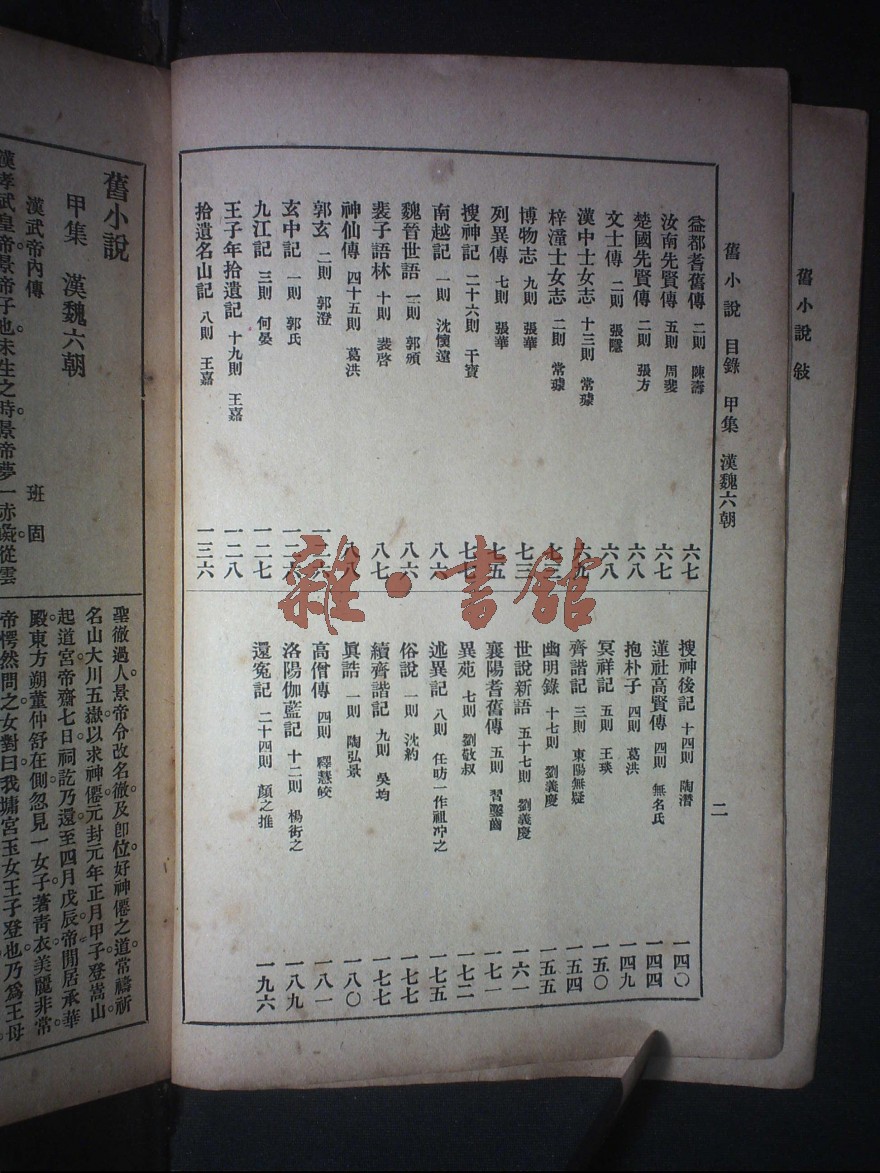 舊小說 敍
舊小說 目錄 甲集 漢魏六朝
二
益都耆舊傳 二則 陳壽 六七
汝南先賢傳 五則 周斐 六七
楚國先賢傳 二則 張方 六八
文士傳 二則 張隱 六八
漢中士女志 十三則 常璩 六九
梓潼士女志 二則 常璩 七三
博物志 九則 張華 七三
列異傳 七則 張華 七五
搜神記 二十六則 干寶 七七
南越記 一則 沈懷遠 八六
魏晉世語 二則 郭頒 八六
裴子語林 十則 裴啓 八七
神仙傳 四十五則 葛洪 八八
郭玄 二則 郭澄 一二六
玄中記 一則 郭氏 一二六
九江記 三則 何晏 一二七
王子年拾遺記 十九則 王嘉 一二八
拾遺名山記 八則 王嘉 一三六
搜神後記 十四則 陶潛 一四〇
蓮社高賢傳 四則 無名氏 一四四
抱朴子 四則 葛洪 一四九
冥祥記 五則 王琰 一五〇
齊諧記 三則 東陽無疑 一五四
幽明錄 十七則 劉義慶 一五五
世說新語 五十七則 劉義慶 一六一
襄陽耆舊傳 五則 習鑿齒 一七一
異苑 七則 劉敬叔 一七二
述異記 八則 任昉一作祖冲之 一七五
俗說 一則 沈約 一七七
續齊諧記 九則 吳均 一七七
眞誥 一則 陶弘景 一八〇
高僧傳 四則 釋慧皎 一八一
洛陽伽藍記 十二則 楊衒之 一八九
還冤記 二十四則 顏之推 一九六
雜·書館
舊小說
甲集 漢魏六朝
漢武帝內傳 班固
漢孝武皇帝景帝子也未生之時。景帝夢一赤彘從雲
聖徹過人。景帝令改名徹。及卽位。好神僊之道。常禱祈
名山大川五嶽以求神僊。元封元年正月甲子登嵩山
起道宮。帝齋七日。祠訖乃還。至四月戊辰。帝閒居承華
殿。東方朔董仲舒在側。忽見一女子著靑衣。美麗非常。
帝愕然問之。女對曰。我墉宮玉女王子登也。乃爲王母